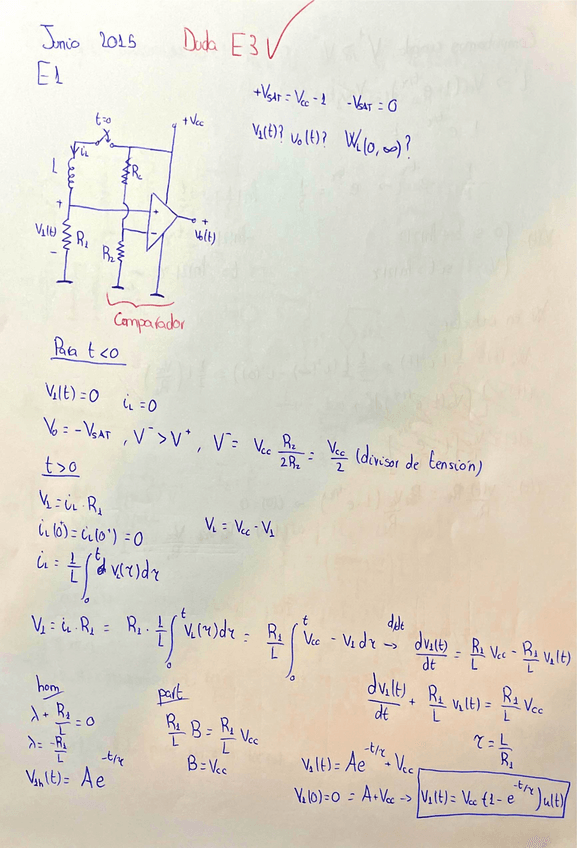 Junio 2015 Duda E3 ✓
E1
+V_SAT = Vcc - 1 -V_SAT = 0
V1(t)? vo(t)? W_L(0,∞)?
t=0
+Vcc
iL
L
R2
+
+
V1(t)
R1
-
-
R2
+
Vo(t)
Comparador
Para t<0
V1(t)=0 iL=0
Vo = -V_SAT, V⁻ > V⁺, V⁻ = Vcc R2/2R2 = Vcc/2 (divisor de tensión)
t>0
V1 = iL · R1
iL(0⁻) = iL(0⁺) = 0 VL = Vcc - V1
iL = 1/L ∫₀ᵗ vL(τ)dτ
V1 = iL · R1 = R1 · 1/L ∫₀ᵗ VL(τ)dτ = R1/L ∫₀ᵗ Vcc - V1 dτ d/dt → dv1(t)/dt = R1/L Vcc - R1/L V1(t)
hom part dv1(t)/dt + R1/L V1(t) = R1/L Vcc
λ + R1/L = 0 R1/L B = R1/L Vcc
λ = -R1/L B = Vcc τ = L/R1
V1h(t) = Ae^(-t/τ) V1(t) = Ae^(-t/τ) + Vcc
V1(0)=0 = A+Vcc → V1(t) = Vcc (1 - e^(-t/τ)) u(t)